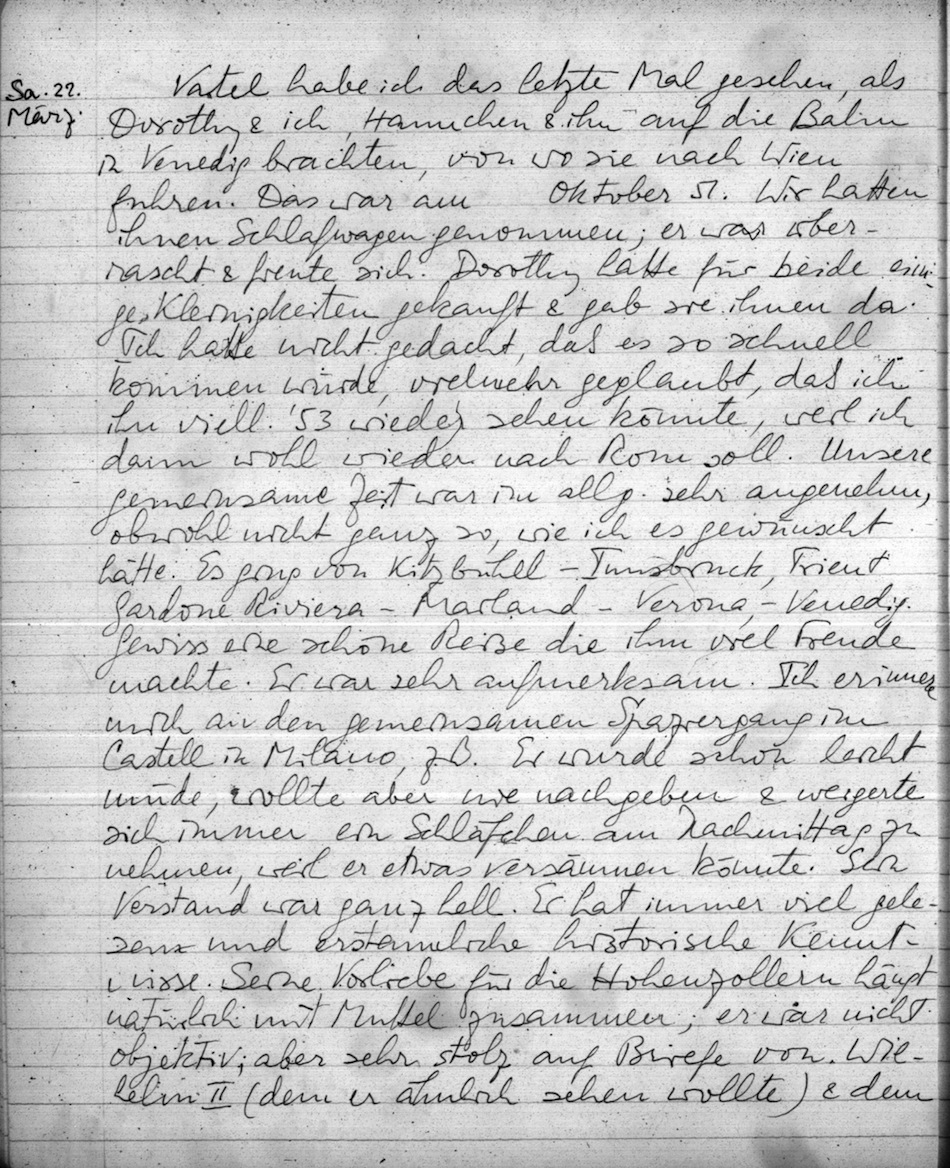 Sa. 22.
März.
Vatel habe ich das letzte Mal gesehen, als
Dorothy & ich, Hannchen & ihn auf die Bahn
in Venedig brachten, von wo sie nach Wien
fuhren. Das war am Oktober 51. Wir hatten
ihnen Schlafwagen genommen; er war über-
rascht & freute sich. Dorothy hatte für beide eini-
ge Kleinigkeiten gekauft & gab sie ihnen da.
Ich hatte nicht gedacht, daß es so schnell
kommen würde, vielmehr geglaubt, daß ich
ihn viell. '53 wieder sehen könnte, weil ich
dann wohl wieder nach Rom soll. Unsere
gemeinsame Zeit war im allg. sehr angenehm,
obwohl nicht ganz so, wie ich es gewünscht
hätte. Es ging von Kitzbühel – Innsbruck, Trient
Gardone Riviera – Mailand – Verona, – Venedig.
Gewiss eine schöne Reise die ihm viel Freude
machte. Er war sehr aufmerksam. Ich erinnere
mich an den gemeinsamen Spaziergang im
Castell in Milano, zB. Er wurde schon leicht
müde, wollte aber nie nachgeben & weigerte
sich immer ein Schläfchen am Nachmittag zu
nehmen, weil er etwas versäumen könnte. Sein
Verstand war ganz hell. Er hat immer viel gele-
sen und erstaunliche historische Kennt-
nisse. Seine Vorliebe für die Hohenzollern hängt
natürlich mit Muttel zusammen; er war nicht
objektiv; aber sehr stolz auf Briefe von Wil-
helm II (dem er ähnlich sehen wollte) & dem